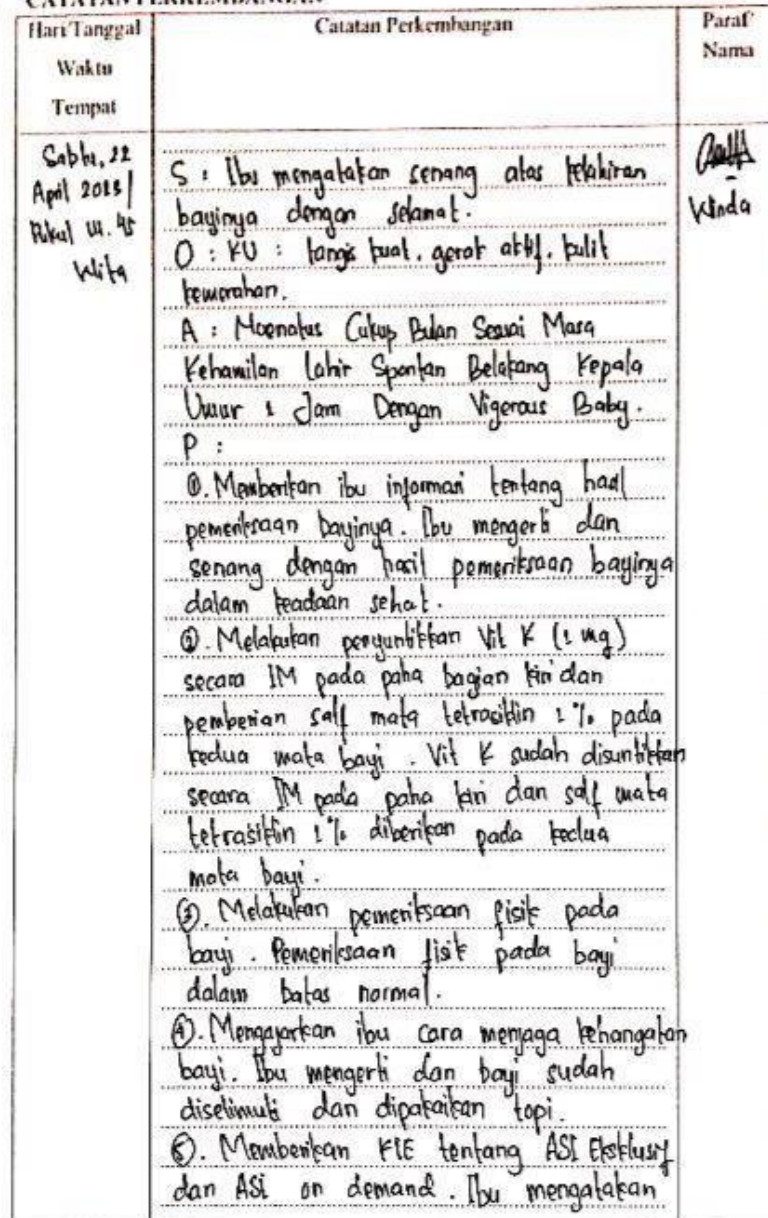 CATATAN PERKEMBANGAN
Hari/Tanggal
Waktu
Tempat
Catatan Perkembangan
Paraf/
Nama
Sabtu, 22
April 2023/
Pukul
Wita
S : Ibu mengatakan senang atas kelahiran
bayinya dengan selamat.
O : KU : tangis kuat, gerak aktif, kulit
kemerahan.
A : Neonatus Cukup Bulan Sesuai Masa
Kehamilan Lahir Spontan Belakang Kepala
Umur 1 Jam Dengan Vigerous Baby.
P :
①. Memberikan ibu informasi tentang hasil
pemeriksaan bayinya. Ibu mengerti dan
senang dengan hasil pemeriksaan bayinya
dalam keadaan sehat.
②. Melakukan penyuntikkan Vit K (1 mg)
secara IM pada paha bagian kiri dan
pemberian salf mata tetrasiklin 1% pada
kedua mata bayi. Vit K sudah disuntikkan
secara IM pada paha kiri dan salf mata
tetrasiklin 1% diberikan pada kedua
mata bayi.
③. Melakukan pemeriksaan fisik pada
bayi. Pemeriksaan fisik pada bayi
dalam batas normal.
④. Mengajarkan ibu cara menjaga kehangatan
bayi. Ibu mengerti dan bayi sudah
diselimuti dan dipakaikan topi.
⑤. Memberikan KIE tentang ASI Eksklusif
dan ASI on demand. Ibu mengatakan
Winda